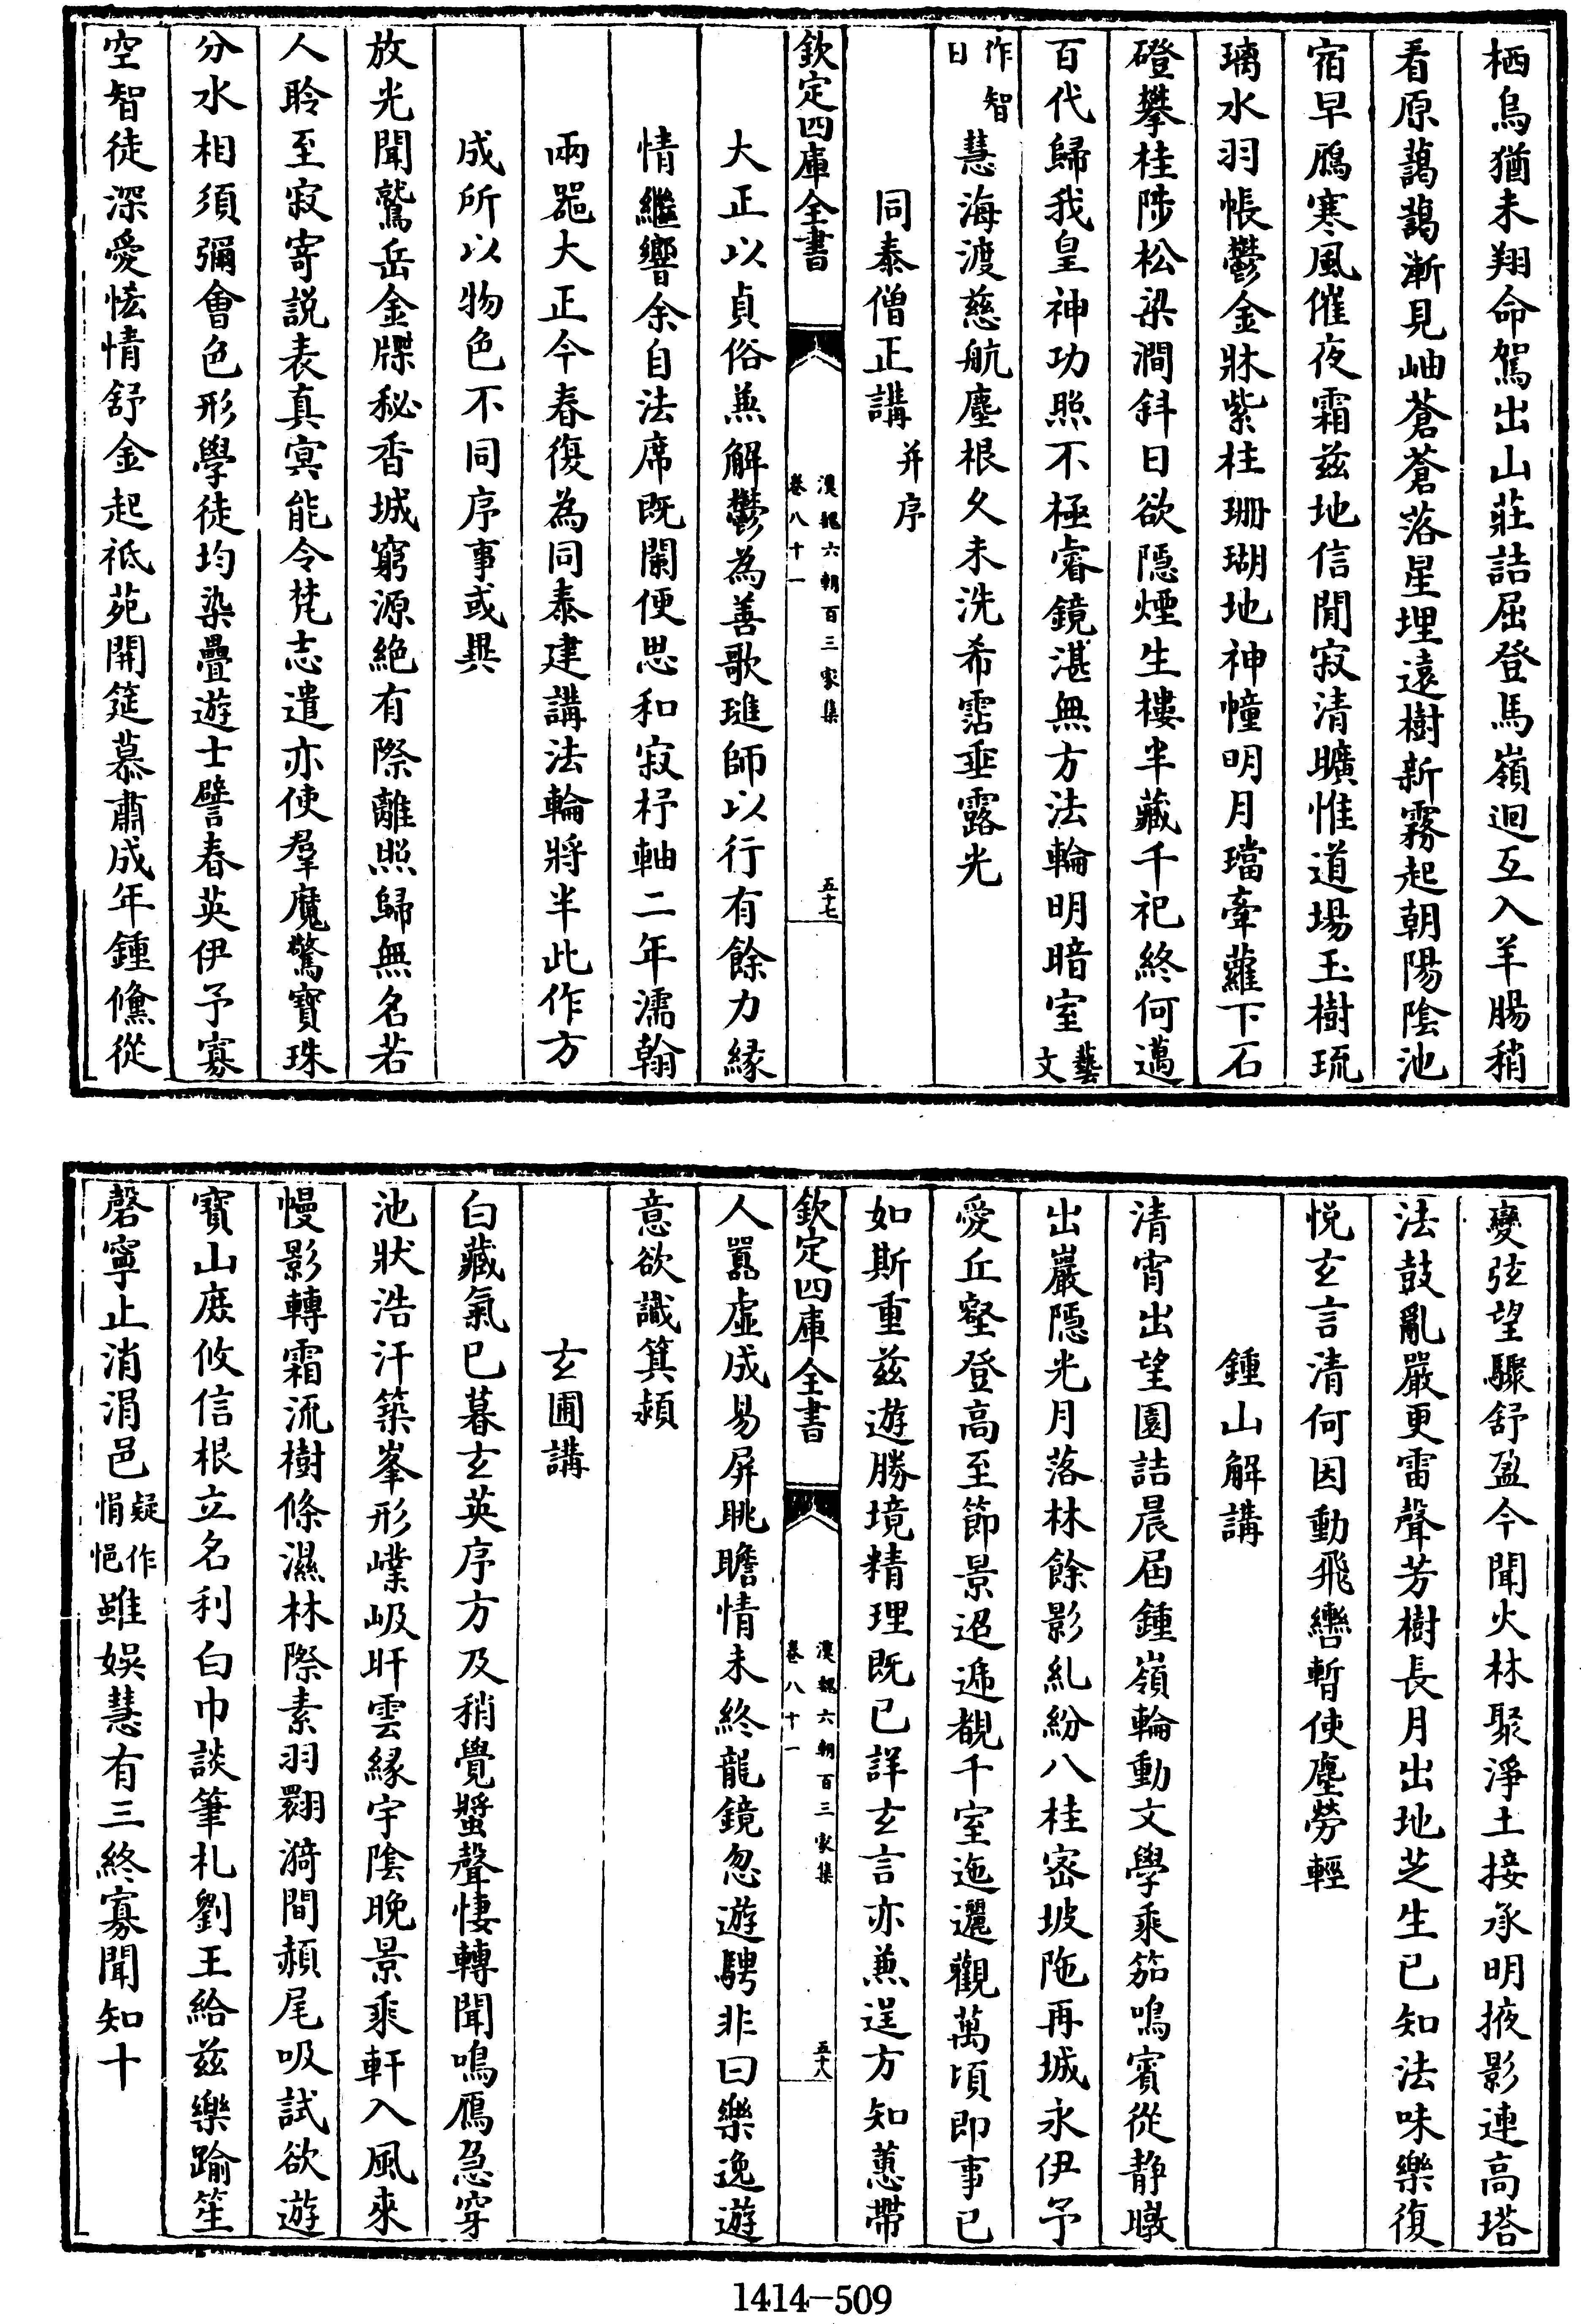 栖烏猶未翔命駕出山莊詰屈登馬嶺迴互入羊腸稍
看原藹藹漸見岫蒼蒼落星埋遠樹新霧起朝陽陰池
宿早鴈寒風催夜霜兹地信閒寂清曠惟道場玉樹琉
璃水羽帳鬱金牀紫柱珊瑚地神幢明月璫牽蘿下石
磴攀桂陟松梁澗斜日欲隱煙生樓半藏千祀終何邁
百代歸我皇神功照不極睿鏡湛無方法輪明暗室藝文
作智日慧海渡慈航塵根久未洗希霑垂露光
同泰僧正講并序
欽定四庫全書
漢魏六朝百三家集
卷八十一
五十七
大正以貞俗兼解鬱為善歌璡師以行有餘力緣
情繼響余自法席既闌便思和寂杼軸二年濡翰
兩器大正今春復為同泰建講法輪將半此作方
成所以物色不同序事或異
放光聞鷲岳金牒秘香城窮源絶有際離照歸無名若
人聆至寂寄説表真冥能令梵志遣亦使羣魔驚寶珠
分水相須彌會色形學徒均染疊遊士譬春英伊予寡
空智徒深愛怯情舒金起祗苑開筵慕肅成年鍾儵從
變弦望驟舒盈今聞火林聚淨土接承明掖影連高塔
法鼓亂嚴更雷聲芳樹長月出地芝生已知法味樂復
悦玄言清何因動飛轡暫使塵勞輕
鍾山解講
清宵出望園詰晨届鍾嶺輪動文學乘笳鳴賓從静暾
出巖隱光月落林餘影糺紛八桂密坡陁再城永伊予
愛丘壑登高至節景迢遞覩千室迤邐觀萬頃即事已
如斯重兹遊勝境精理既已詳玄言亦兼逞方知蕙帶
欽定四庫全書
漢魏六朝百三家集
卷八十一
五十八
人嚣虚成易屏眺瞻情未終龍鏡忽遊騁非曰樂逸遊
意欲識箕潁
玄圃講
白藏氣已暮玄英序方及稍覺螿聲悽轉聞鳴鴈急穿
池狀浩汗築峯形嶫岋旰雲緣宇陰晚景乘軒入風來
幔影轉霜流樹條濕林際素羽翾漪間赬尾吸試欲遊
寳山庶攸信根立名利白巾談筆札劉王給兹樂踰笙
磬寧止消涓邑疑作悁悒雖娛慧有三終寡聞知十
1414—509